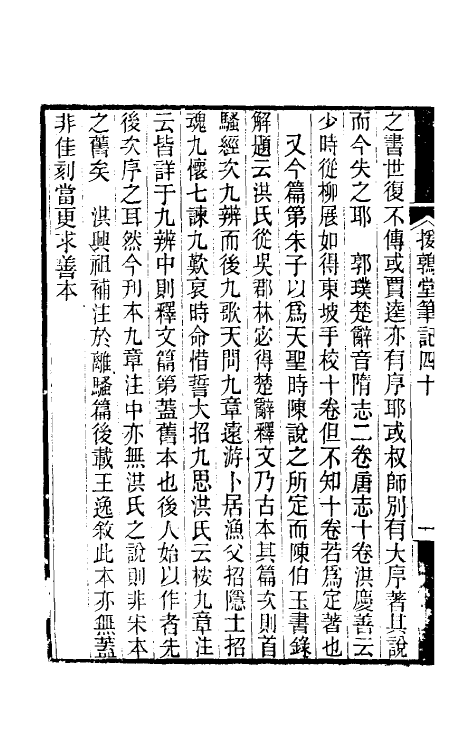 援鶉堂筆記四十
一
之書世復不傳或賈逵亦有序耶或叔師別有大序著其說
而今失之耶　郭璞楚辭音隋志二卷唐志十卷洪慶善云
少時從柳展如得東坡手校十卷但不知十卷若爲定著也
又今篇第朱子以爲天聖時陳說之所定而陳伯玉書錄
解題云洪氏從吳郡林宓得楚辭釋文乃古本其篇次則首
騷經次九辨而後九歌天問九章遠游卜居漁父招隱士招
魂九懷七諫九歎哀時命惜誓大招九思洪氏云桉九章注
云皆詳于九辨中則釋文篇第蓋舊本也後人始以作者先
後次序之耳然今刊本九章注中亦無洪氏之說則非宋本
之舊矣　洪興祖補注於離騷篇後載王逸敘此本亦無蓋
非佳刻當更求善本